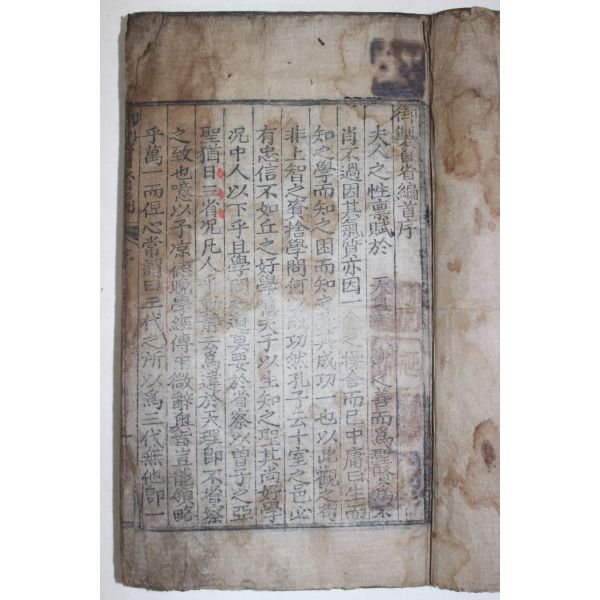 御製自省編首序
夫人之性稟賦於 天 之善而爲 不
肖不過因其氣質亦因一 之操舍而已中庸曰生而
知之學而知之困而知之 其成功一也以此觀之苟
非上智之資捨學問何 成功然孔子云十室之邑必
有忠信不如丘之好學 夫子以生知之聖其尚好學
況中人以下乎且學問之道莫要於省察以曽子之亞
聖猶曰三省况凡人乎動靜云爲違於天理卽不省察
之致也噫以予凉德晚學經傳中微辭奧旨豈能領略
乎萬一而俚心常謂曰三代之所以爲三代無他卽一